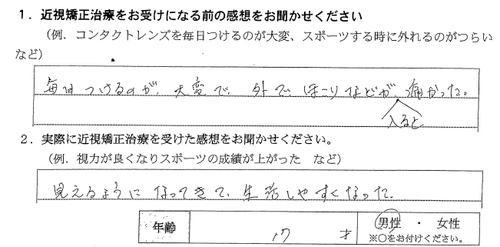 1. 近視矯正治療をお受けになる前の感想をお聞かせください
(例. コンタクトレンズを毎日つけるのが大変、スポーツする時に外れるのがつらい
など)
毎日つけるのが、大変で、外でほこりなどが、痛かった。
入ると
2. 実際に近視矯正治療を受けた感想をお聞かせください。
(例. 視力が良くなりスポーツの成績が上がった など)
見えるようになってきて、生活しやすくなった。
年齢 17 才 男性 ・ 女性
※○をお付けください。